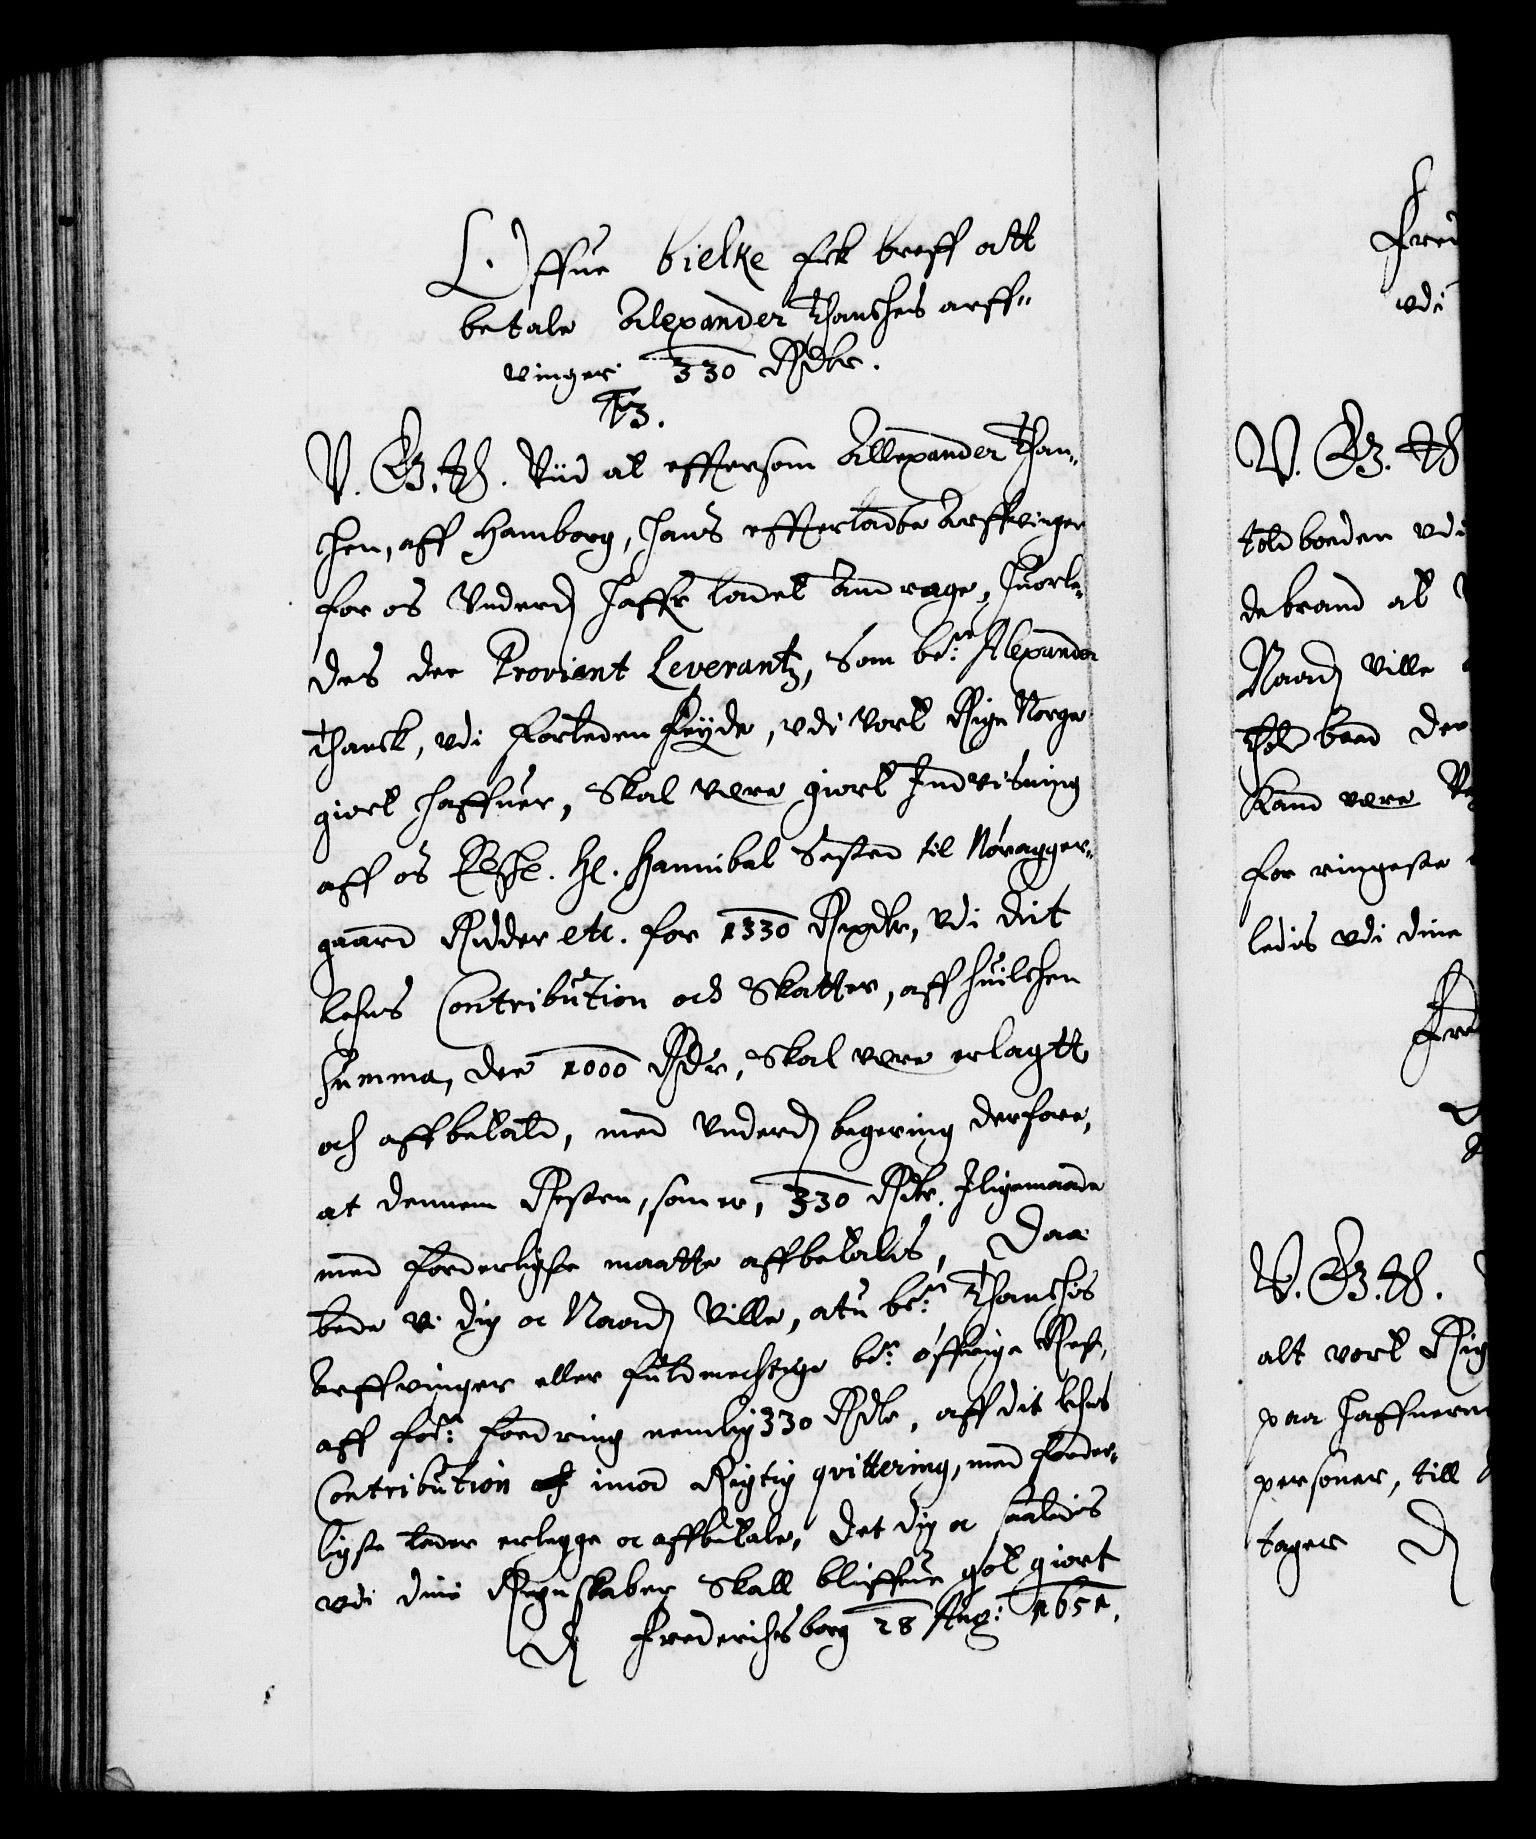 Offue Bielke fik breff att
betale Alexander Thanches arff-
vinger 330 Rdlr.
F3.
V. G. T. Viid at effttersom Allexander Than-
chen, aff Hamborg, hans effterladte Arffvinger
for os Underd haffr ladet Andrage, huorle-
des der Proviant Leverantz, Som be:te Alexander
Thanck, vdi Forleden Feyde, vdi Vort Rige Norge
giort haffuer, Skal være giort Indvisning
aff os Elsche. Hr. Hannibal Sested til Nøragger-
gaard Ridder etc. for 1330 Rixdlr, vdi dit
Lehns Contribution och Skatter, aff huilchen
Summa, der 1000 Rdr, Skal være erlagtt
och affbetald, med Underd begering derfore,
at dennem Resten, som er, 330 Rdlr. Iligemaade
med forderligste maatte affbetalis, Daa
bede vi dig oc Naadh Ville, atu be:te Thanchis
Arffvinger eller fuldmechtige be:te øffrige Rest,
aff for:ne Fordring nemlig 330 Rdlr, aff dit Lehns
Contribution imod Rigtig qvittering, med forder-
ligste lader erlegge oc affbetale, Det dig oc saaledis
vdi dine Regnskaber Skall bliffue got giort
D Frederichsborg 28 Aug: 1651.
Fred
vdi
V. G. T
toldboeden vdi
debrand at
Naadh ville
Told boed der
Kand være
for ringeste
ledis vdi dine
Fred
V. G. T.
alt vort Rig
paa haffuerne
personer, till
tager D